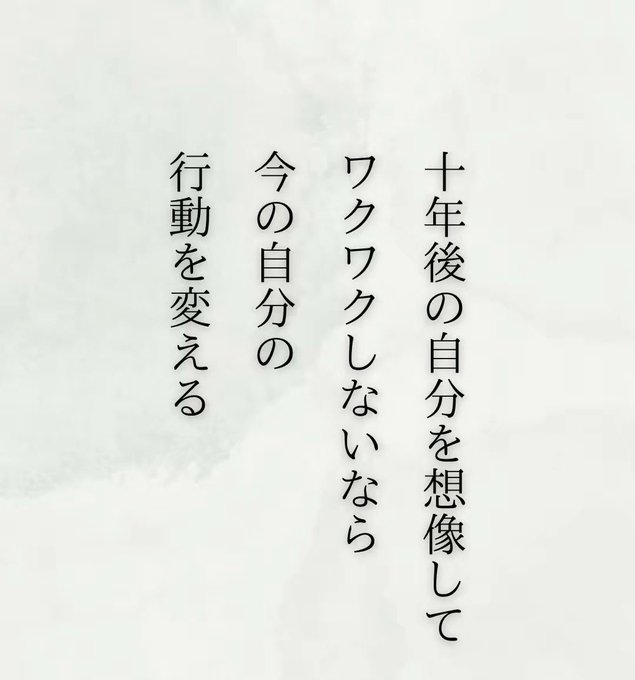 十年後の自分を想像して
ワクワクしないなら
今の自分の
行動を変える